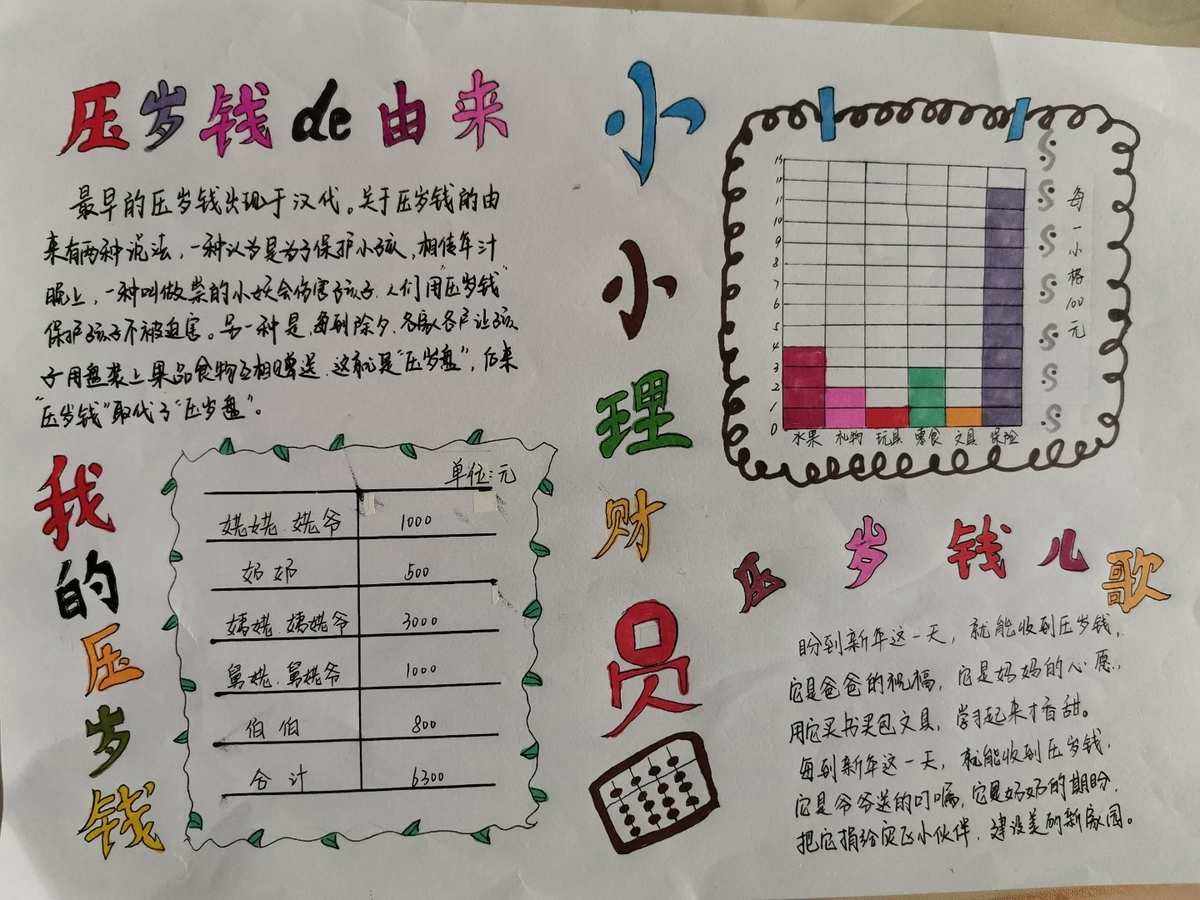 压岁钱de由来
最早的压岁钱出现于汉代。关于压岁钱的由
来有两种说法，一种认为是为了保护小孩，相传年汁
晚上，一种叫做祟的小妖会伤害孩子，人们用"压岁钱"
保护孩子不被迫害。另一种是，每到除夕，各家各户让孩
子用盘装上果品食物互相赠送，这就是"压岁盘"，后来
"压岁钱"取代了"压岁盘"。
我的压岁钱
单位：元
姥姥、姥爷 1000
奶奶 500
姨姥、姨姥爷 3000
舅姥、舅姥爷 1000
伯伯 800
合计 6300
小小理财员
13
11
11
10
9
8
7
6
5
4
3
2
1
0
水果 礼物 玩具 零食 文具 保险
每一小格100元
压岁钱儿歌
盼到新年这一天，就能收到压岁钱，
它是爸爸的祝福，它是妈妈的心愿，
用它买书买包文具，学习起来才香甜。
每到新年这一天，就能收到压岁钱，
它是爷爷送的叮嘱，它是奶奶的期盼，
把它捐给灾区小伙伴，建设美丽新家园。